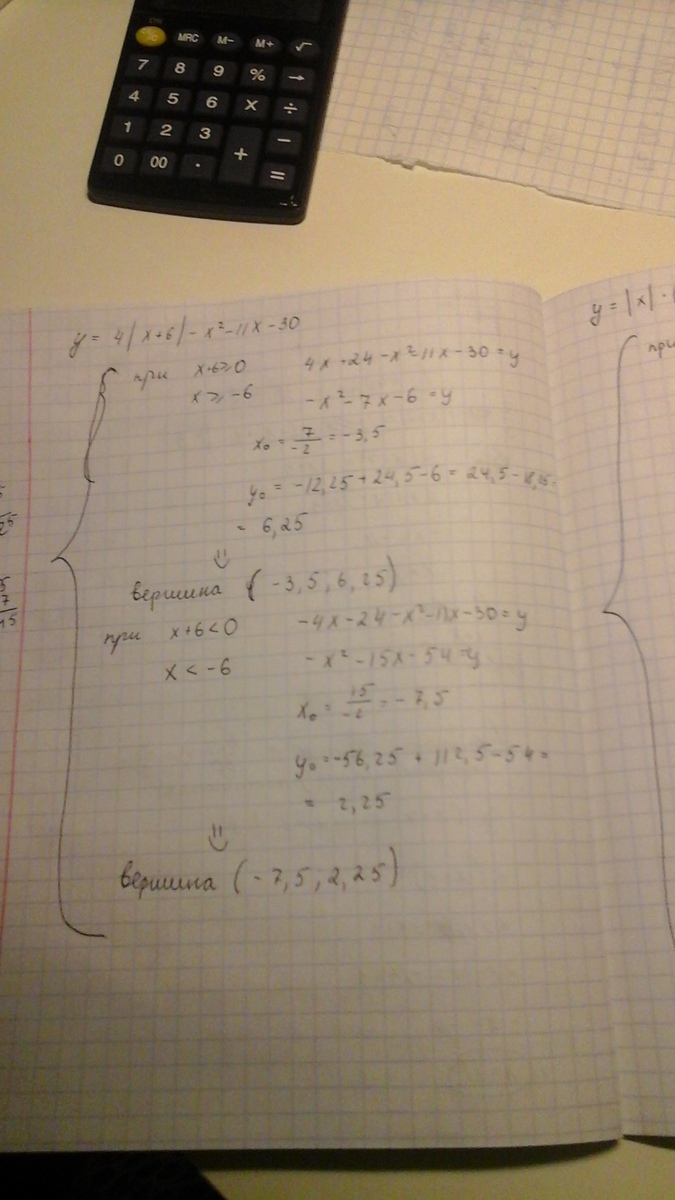 ON
%
MRC M- M+ √
7 8 9 % →
4 5 6 X ÷
1 2 3 + −
0 00 · =
y = 4|x+6| - x² - 11x - 30
y = |x| ·
при x+6≥0 4x+24-x²-11x-30=y
при
x ≥ -6 -x²-7x-6=y
x₀ = 7/-2 = -3,5
y₀ = -12,25+24,5-6 = 24,5-18,25=
= 6,25
⇓
вершина (-3,5, 6,25)
при x+6<0 -4x-24-x²-11x-30=y
x < -6 -x²-15x-54=y
x₀ = 15/-2 = -7,5
y₀ = -56,25 + 112,5-54=
= 2,25
⇓
вершина (-7,5, 2,25)